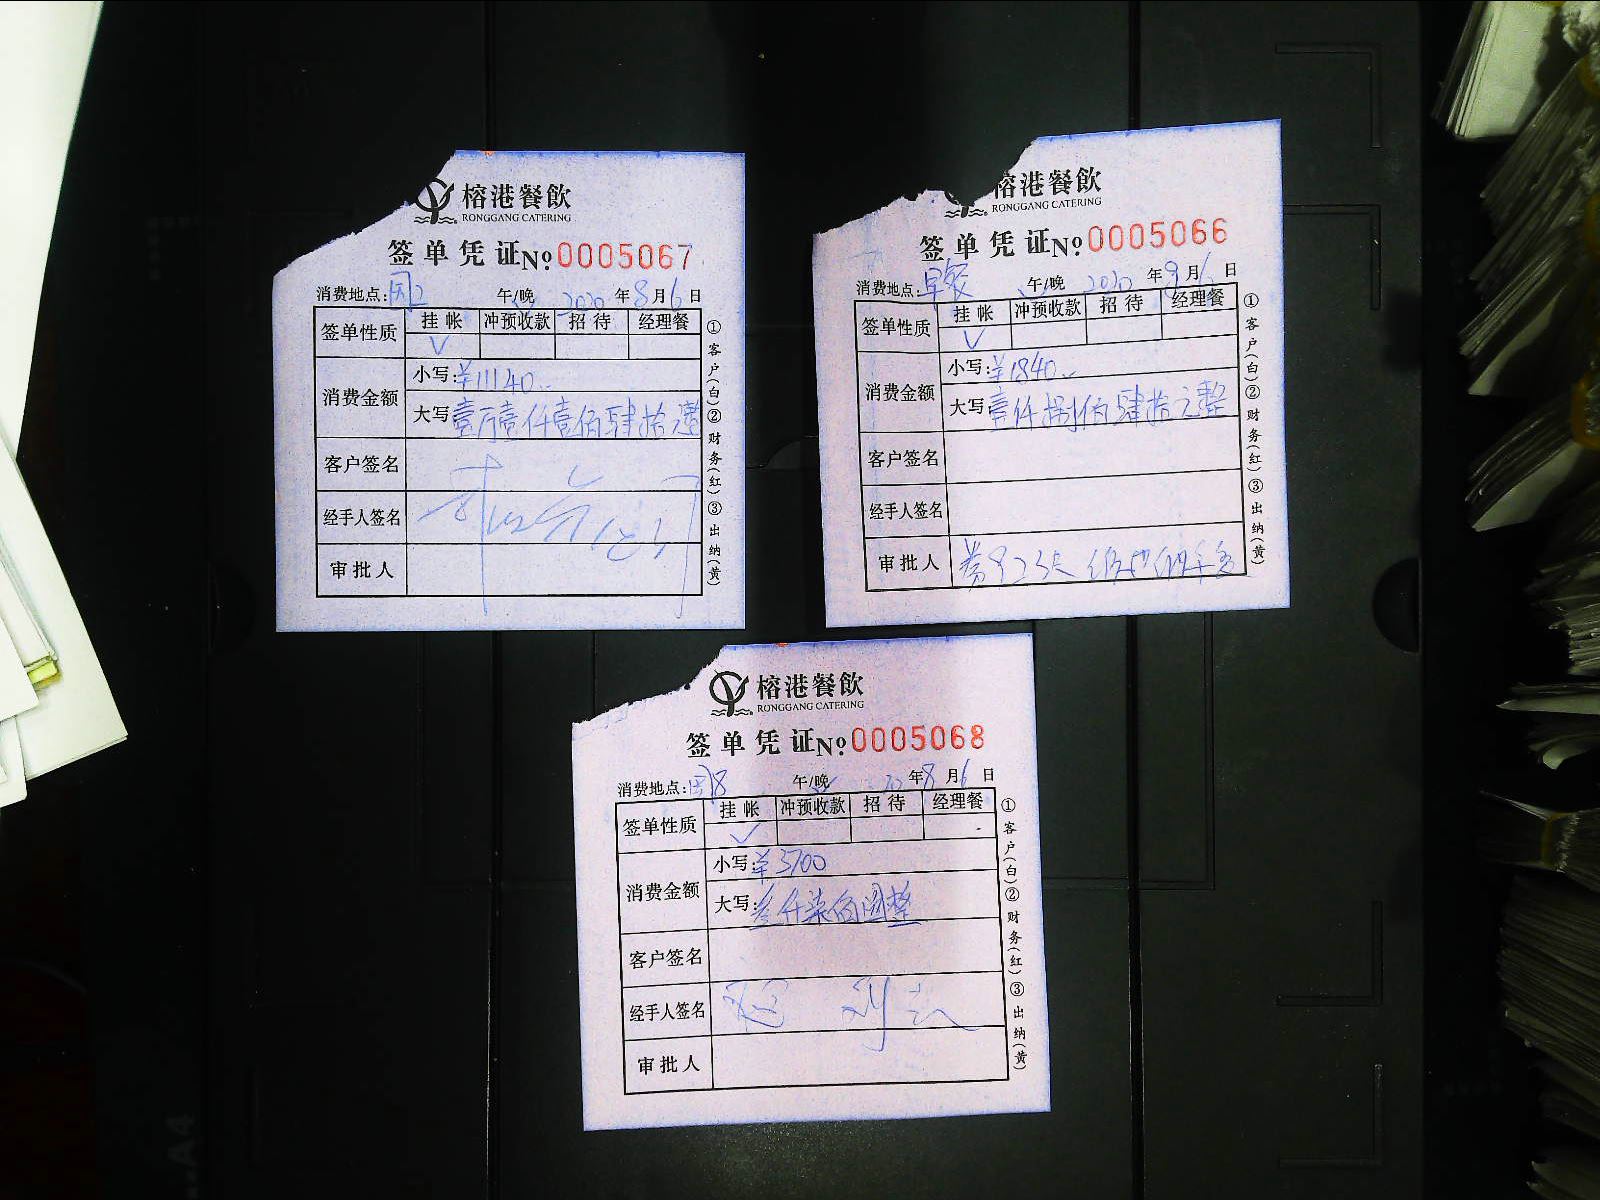 榕港餐飲
RONGGANG CATERING
签单凭证№0005067
消费地点: 午/晚 2020年8月6日
签单性质 挂帐 冲预收款 招待 经理餐
✓
消费金额 小写:¥11140..
大写 壹万壹仟壹佰肆拾元整
客户签名
经手人签名
审批人
①客户(白)②财务(红)③出纳(黄)
榕港餐飲
RONGGANG CATERING
签单凭证№0005066
消费地点:早餐 午/晚 2020年8月6日
签单性质 挂帐 冲预收款 招待 经理餐
✓
消费金额 小写:¥1840..
大写 壹仟捌佰肆拾元整
客户签名
经手人签名
审批人
①客户(白)②财务(红)③出纳(黄)
榕港餐飲
RONGGANG CATERING
签单凭证№0005068
消费地点: 午/晚 20年8月6日
签单性质 挂帐 冲预收款 招待 经理餐
✓
消费金额 小写:¥3700
大写:叁仟柒佰圆整
客户签名
经手人签名
审批人
①客户(白)②财务(红)③出纳(黄)
A4